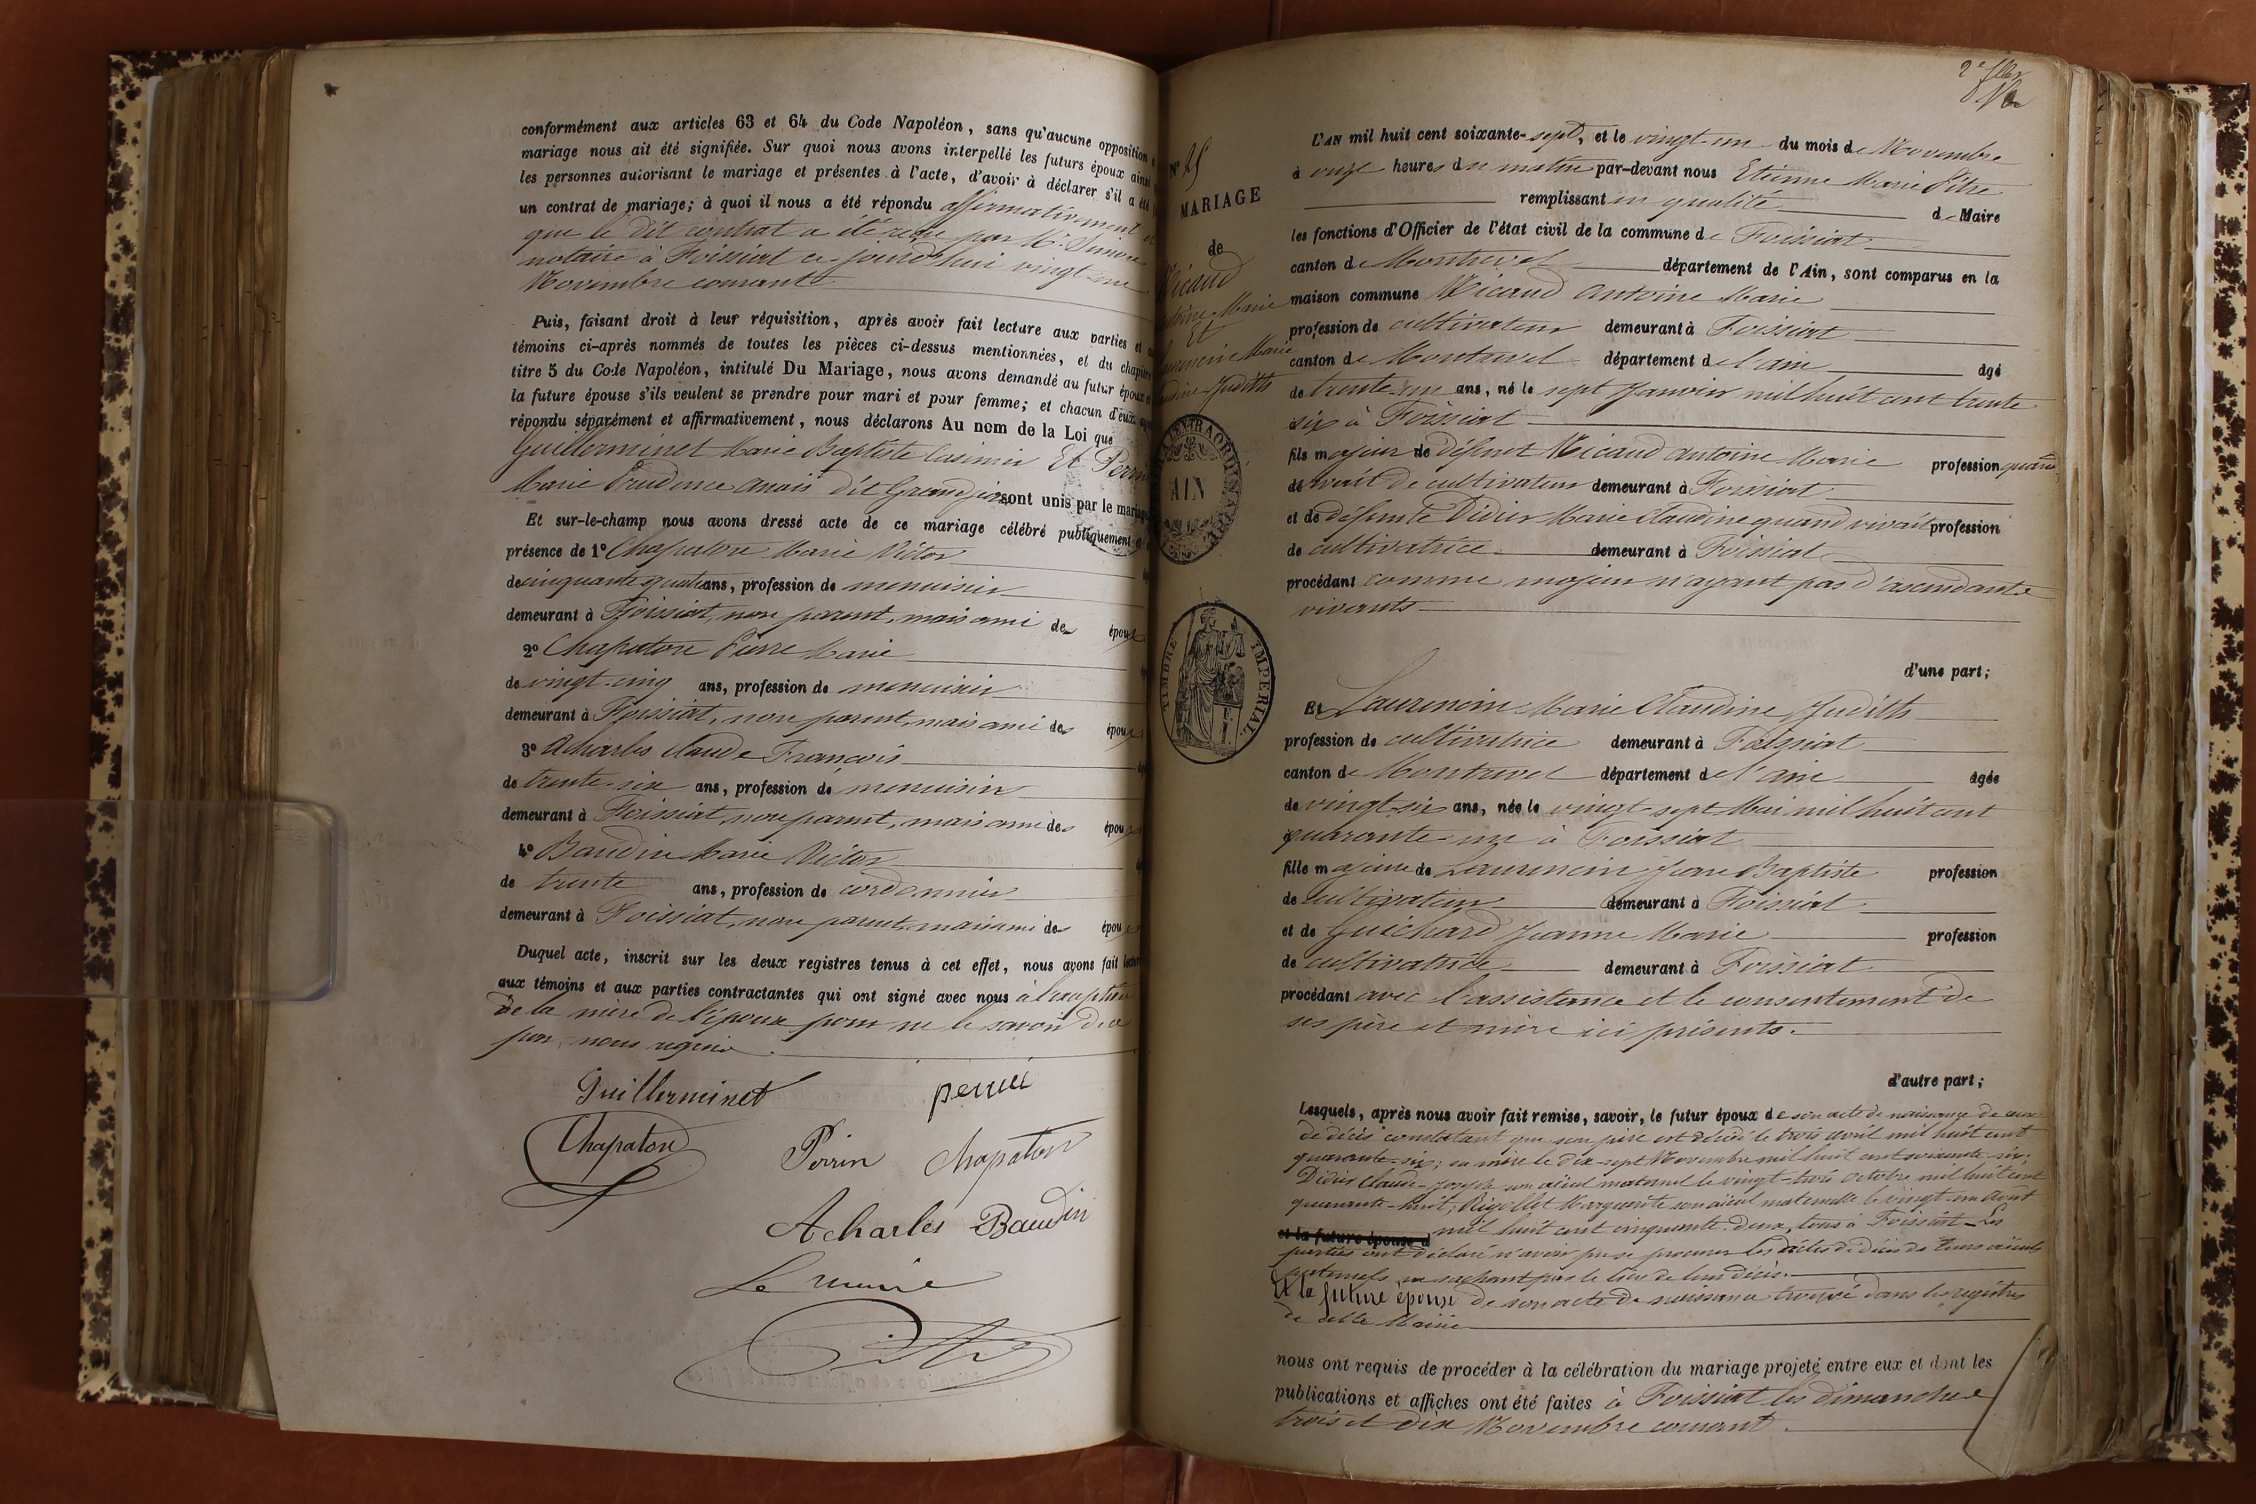 conformément aux articles 63 et 64 du Code Napoléon, sans qu'aucune opposition
mariage nous ait été signifiée. Sur quoi nous avons interpellé les futurs époux ainsi
les personnes autorisant le mariage et présentes à l'acte, d'avoir à déclarer s'il a été
un contrat de mariage; à quoi il nous a été répondu affirmativement et
que le dit contrat a été reçu par Me
notaire à Foissiat ce jourd'hui vingt-un
Novembre courant
Puis, faisant droit à leur réquisition, après avoir fait lecture aux parties et
témoins ci-après nommés de toutes les pièces ci-dessus mentionnées, et du chapitre
titre 5 du Code Napoléon, intitulé Du Mariage, nous avons demandé au futur époux
la future épouse s'ils veulent se prendre pour mari et pour femme; et chacun d'eux
répondu séparément et affirmativement, nous déclarons Au nom de la Loi que
Guillerminet Marie Baptiste Casimir Et Perrin
Marie Prudence Anaïs dit Grandjean sont unis par le mariage
Et sur-le-champ nous avons dressé acte de ce mariage célébré publiquement
présence de 1° Chapaton Marie Victor
de cinquante quatre ans, profession de menuisier
demeurant à Foissiat, non parent, mais ami des époux
2° Chapaton Pierre Marie
de vingt-cinq ans, profession de menuisier
demeurant à Foissiat, non parent, mais ami des époux
3° Acharles Claude François
de trente-six ans, profession de menuisier
demeurant à Foissiat, non parent, mais ami des époux
4° Baudin Marie Victor
de trente ans, profession de cordonnier
demeurant à Foissiat, non parent, mais ami des époux
Duquel acte, inscrit sur les deux registres tenus à cet effet, nous avons fait lecture
aux témoins et aux parties contractantes qui ont signé avec nous à l'exception
de la mère de l'époux pour ne le savoir de ce
par nous requise
Guillerminet perrin
Chapaton Perrin Chapaton
Acharles Baudin
Le maire
Pitre
N° 25
MARIAGE
de
Micaud
Antoine Marie
Et
Laurencin Marie
Claudine Judith
AIN
TIMBRE IMPERIAL
L'AN mil huit cent soixante-sept, et le vingt-un du mois de Novembre
à onze heures du matin par-devant nous Etienne Marie Pitre
remplissant en qualité de Maire
les fonctions d'Officier de l'état civil de la commune de Foissiat
canton de Montrevel département de l'Ain, sont comparus en la
maison commune Micaud Antoine Marie
profession de cultivateur demeurant à Foissiat
canton de Montrevel département de l'ain âgé
de trente-un ans, né le sept Janvier mil huit cent trente
six à Foissiat
fils majeur de défunt Micaud Antoine Marie profession quand
vivait de cultivateur demeurant à Foissiat
et de défunte Didier Marie Claudine quand vivait profession
de cultivatrice demeurant à Foissiat
procédant comme majeur n'ayant pas d'ascendants
vivants
d'une part;
Et Laurencin Marie Claudine Judith
profession de cultivatrice demeurant à Foissiat
canton de Montrevel département de l'ain âgée
de vingt-six ans, née le vingt-sept Mai mil huit cent
quarante-un à Foissiat
fille majeure de Laurencin Jean Baptiste profession
de cultivateur demeurant à Foissiat
et de Guichard Jeanne Marie profession
de cultivatrice demeurant à Foissiat
procédant avec l'assistance et le consentement de
ses père et mère ici présents.
d'autre part;
Lesquels, après nous avoir fait remise, savoir, le futur époux de son acte de naissance de ceux
de décès constatant que son père est décédé le trois août mil huit cent
quarante-six; sa mère le dix-sept Novembre mil huit cent soixante-six;
Didier Claude-Joseph son aïeul maternel le vingt-trois Octobre mil huit cent
quarante-huit; Rigollet Marguerite son aïeul maternelle le vingt-un Août
et la future épouse d mil huit cent cinquante-deux, tous à Foissiat Les
parties ont déclaré n'avoir pu se procurer les actes de décès de leurs aïeuls
paternels ne sachant pas le lieu de leur décès.
Et la future épouse de son acte de naissance trouvé dans les registres
de cette Mairie
nous ont requis de procéder à la célébration du mariage projeté entre eux et dont les
publications et affiches ont été faites à Foissiat les dimanche
trois et dix Novembre courant.